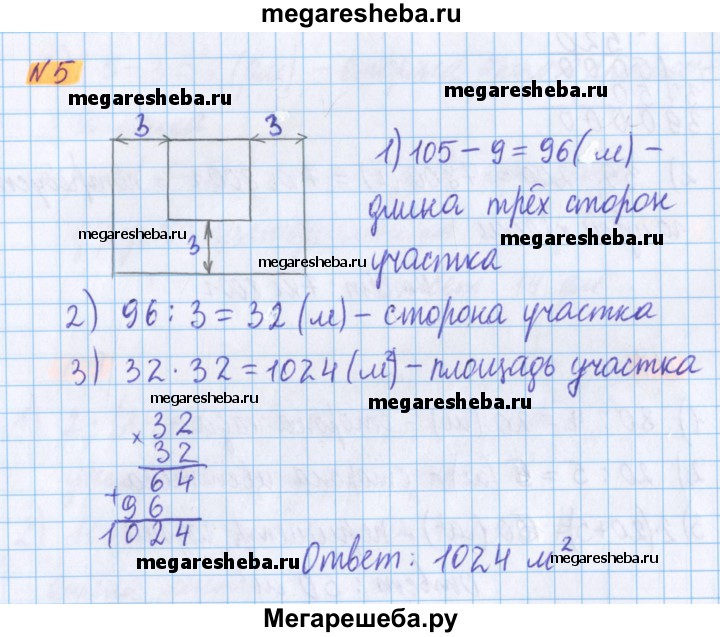 megaresheba.ru
N 5
megaresheba.ru
megaresheba.ru
3 3
1) 105 - 9 = 96 (м) -
длина трёх сторон
megaresheba.ru
megaresheba.ru
3
участка
2) 96 : 3 = 32 (м) - сторона участка
3) 32 · 32 = 1024 (м²) - площадь участка
megaresheba.ru
megaresheba.ru
× 32
32
64
+ 96
1024
megaresheba.ru
Ответ: 1024 м²
megaresheba.ru
Мегарешеба.ру